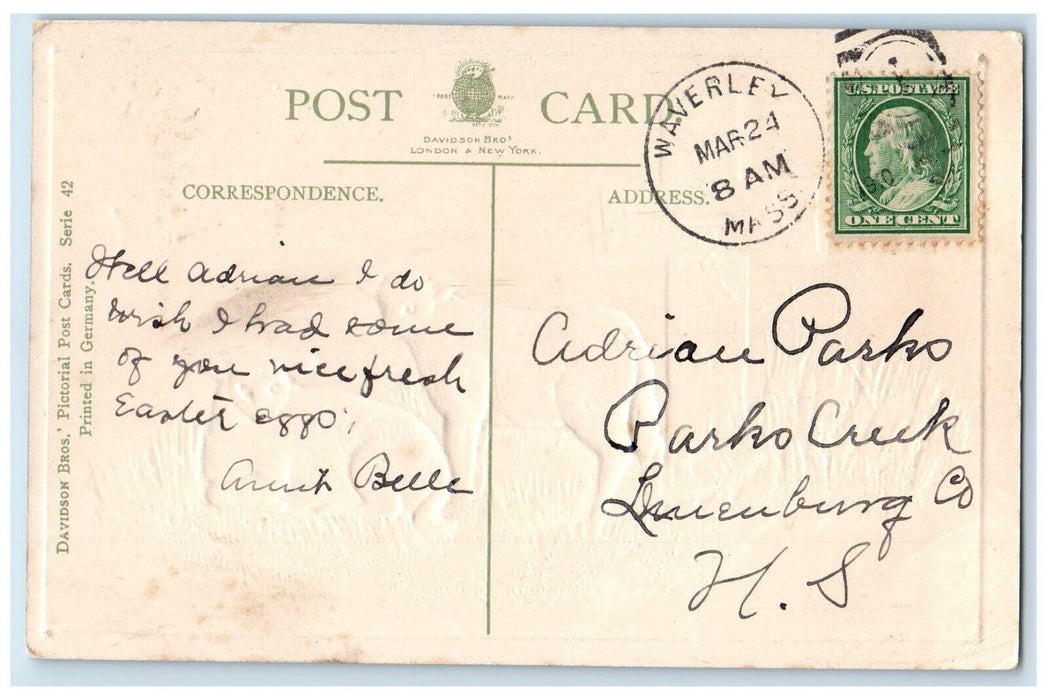 POST CARD
TRADE MARK
DAVIDSON BROS
LONDON & NEW YORK.
WAVERLEY
MAR 24
8 AM
MASS.
U.S. POSTAGE
ONE CENT
CORRESPONDENCE.
ADDRESS.
DAVIDSON BROS.' Pictorial Post Cards. Serie 42
Printed in Germany.
Well Adrian I do
wish I had some
of you nice fresh
Easter eggs.
Aunt Belle
Adrian Parks
Parks Creek
Lunenburg Co
N. S